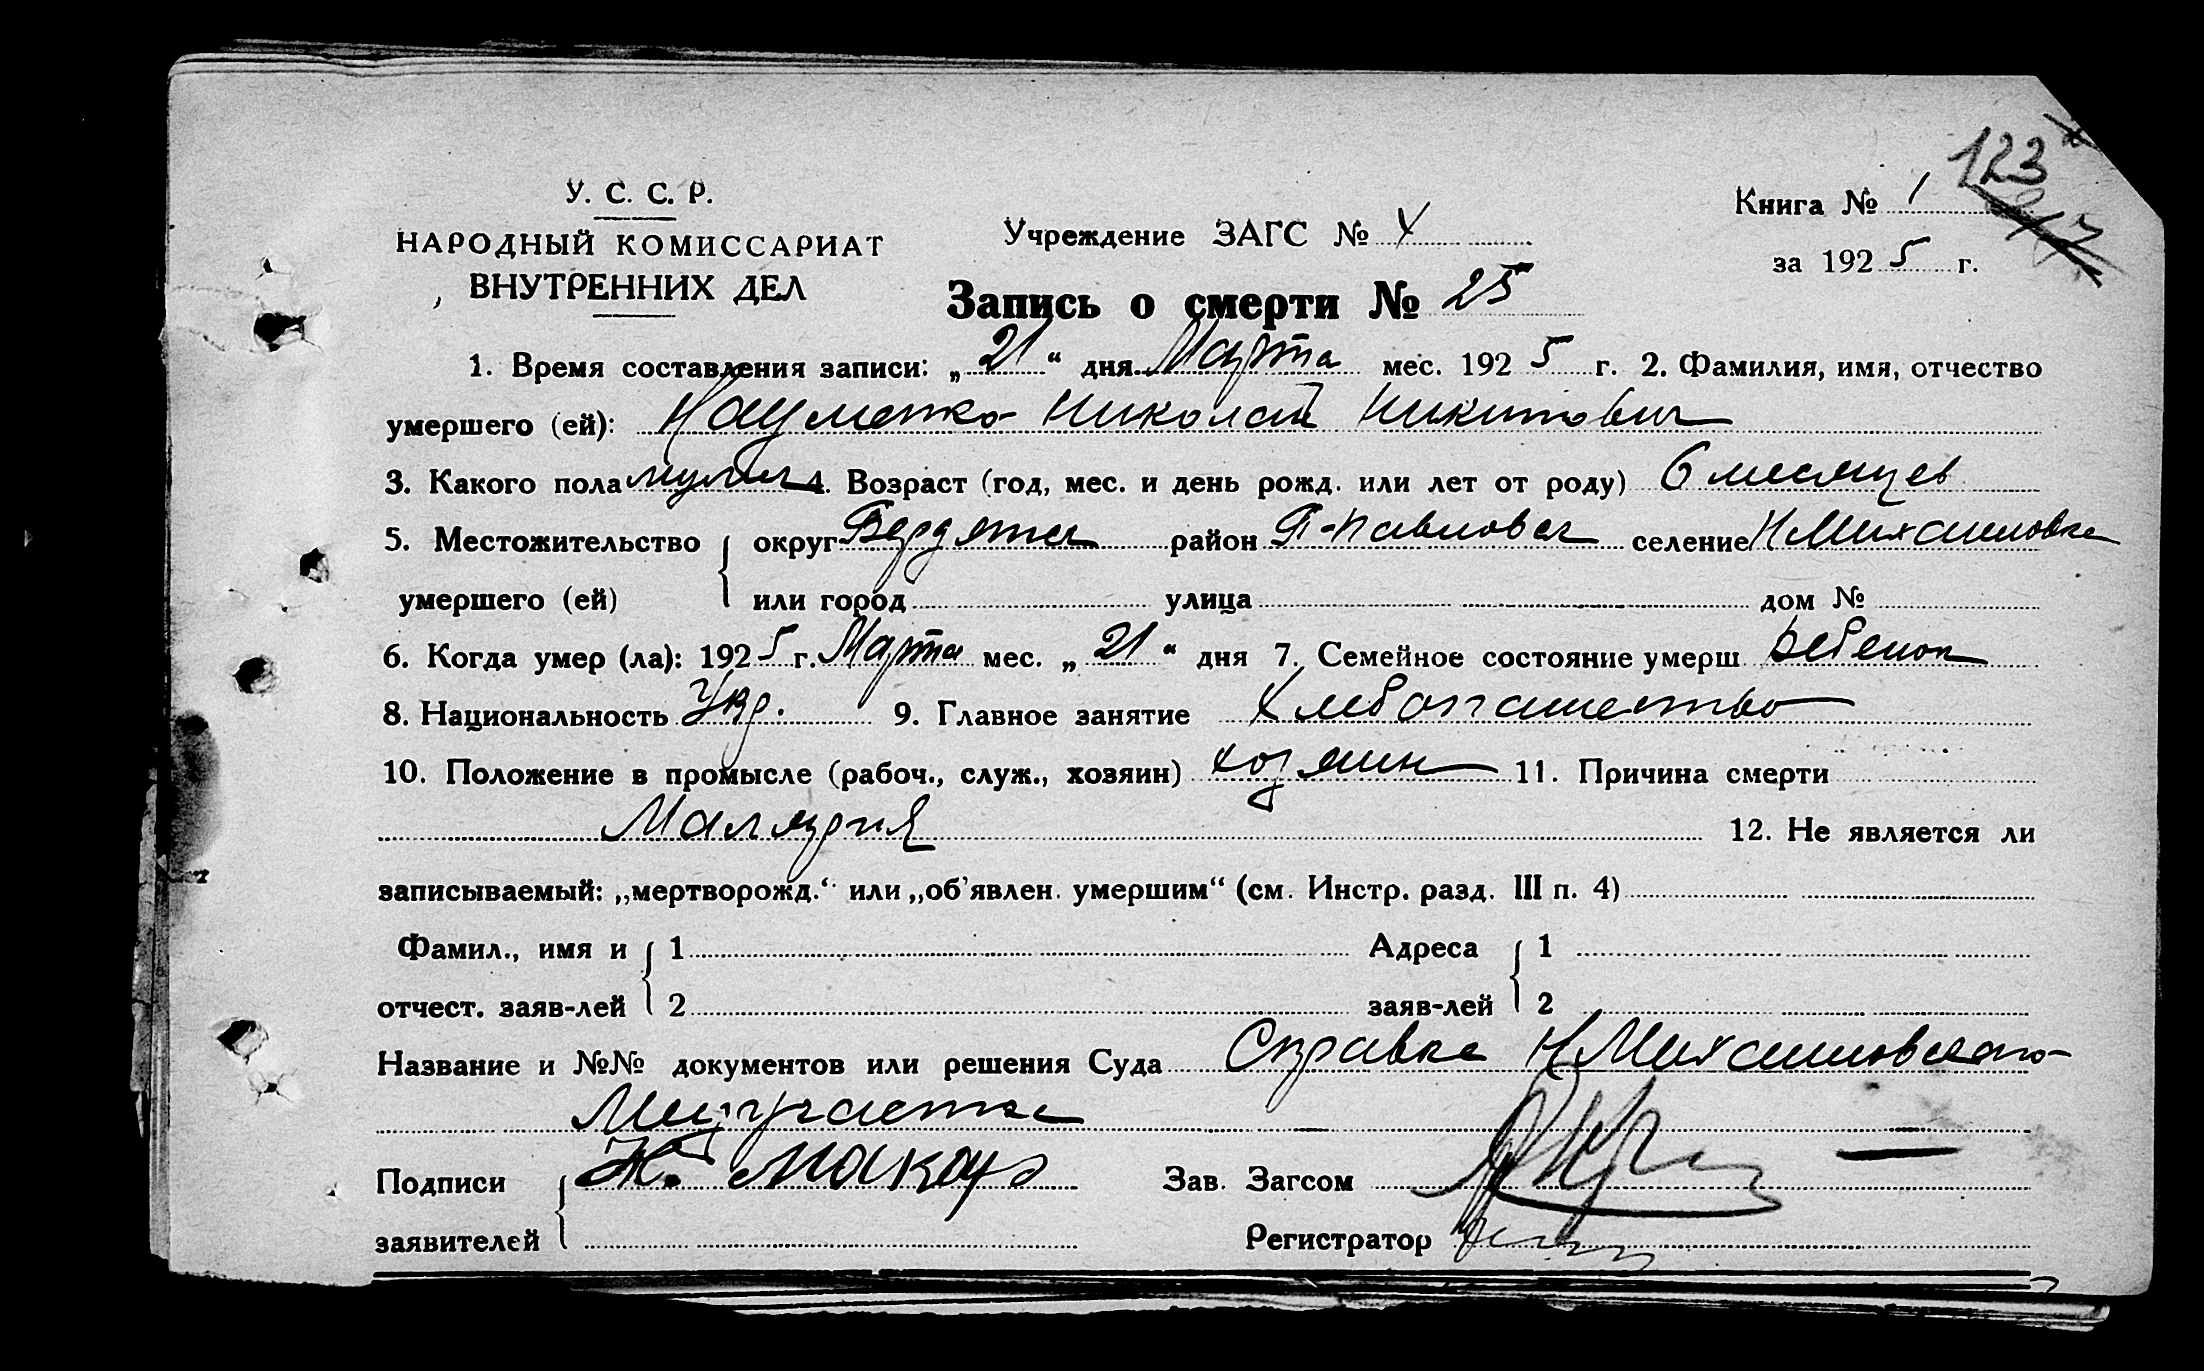 123
У. С. С. Р.
НАРОДНЫЙ КОМИССАРИАТ
ВНУТРЕННИХ ДЕЛ
Учреждение ЗАГС №
Книга № 1
за 1925 г.
Запись о смерти № 25
1. Время составления записи: „21“ дня Марта мес. 1925 г. 2. Фамилия, имя, отчество
умершего (ей): Науменко Николай Никитович
3. Какого пола мужск 4. Возраст (год, мес. и день рожд. или лет от роду) 6 месяцев
5. Местожительство округ Бердянск район П-Павловск селение Н Михайловка
умершего (ей) или город улица дом №
6. Когда умер (ла): 1925 г. Марта мес. „21“ дня 7. Семейное состояние умерш. ребенок
8. Национальность Укр. 9. Главное занятие Хлебопашество
10. Положение в промысле (рабоч., служ., хозяин) хозяин 11. Причина смерти
Малярия 12. Не является ли
записываемый: „мертворожд.“ или „об'явлен. умершим“ (см. Инстр. разд. III п. 4)
Фамил., имя и 1 Адреса 1
отчест. заяв-лей 2 заяв-лей 2
Название и №№ документов или решения Суда Справка Н Михайловского
Медучастка
Подписи Зав. Загсом
заявителей Регистратор